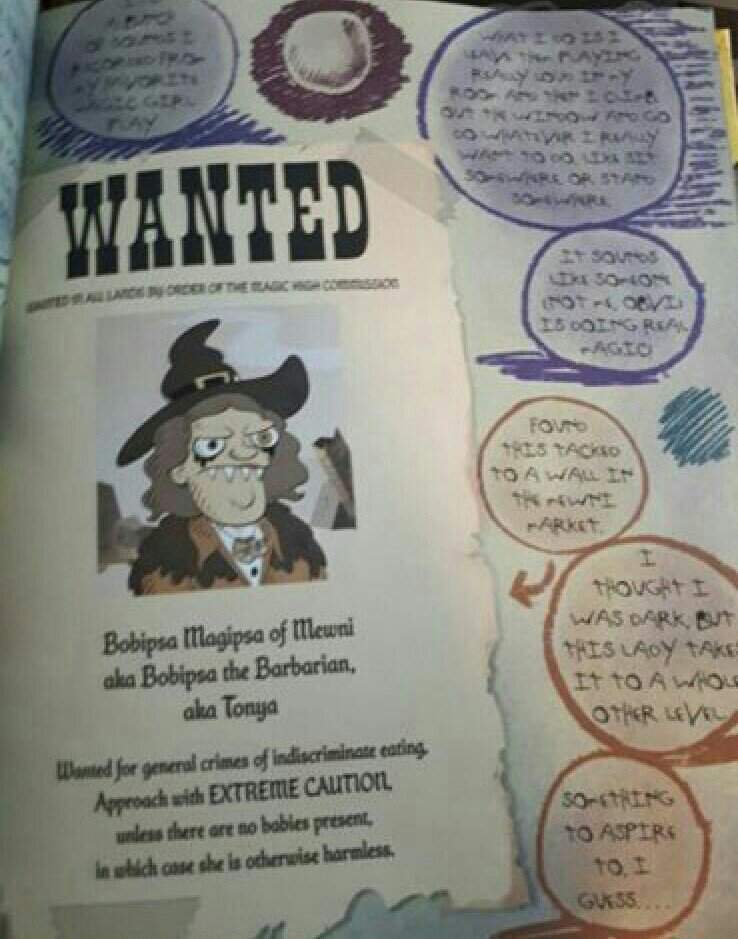 A BUNCH
OF SOUNDS I
RECORDED FROM
MY FAVORITE
MAGIC GIRL
PLAY
WHAT I DO IS I
LEAVE THEM PLAYING
REALLY LOUD IN MY
ROOM AND THEN I CLIMB
OUT THE WINDOW AND GO
DO WHATEVER I REALLY
WANT TO DO, LIKE SIT
SOMEWHERE OR STAND
SOMEWHERE
IT SOUNDS
LIKE SOMEONE
(NOT ME, OBVI)
IS DOING REAL
MAGIC
WANTED
WANTED IN ALL LANDS BY ORDER OF THE MAGIC HIGH COMMISSION
Bobipsa Magipsa of Mewni
aka Bobipsa the Barbarian,
aka Tonya
Wanted for general crimes of indiscriminate eating.
Approach with EXTREME CAUTION,
unless there are no babies present,
in which case she is otherwise harmless.
FOUND
THIS TACKED
TO A WALL IN
THE MEWNI
MARKET.
I
THOUGHT I
WAS DARK, BUT
THIS LADY TAKES
IT TO A WHOLE
OTHER LEVEL
SOMETHING
TO ASPIRE
TO, I
GUESS....